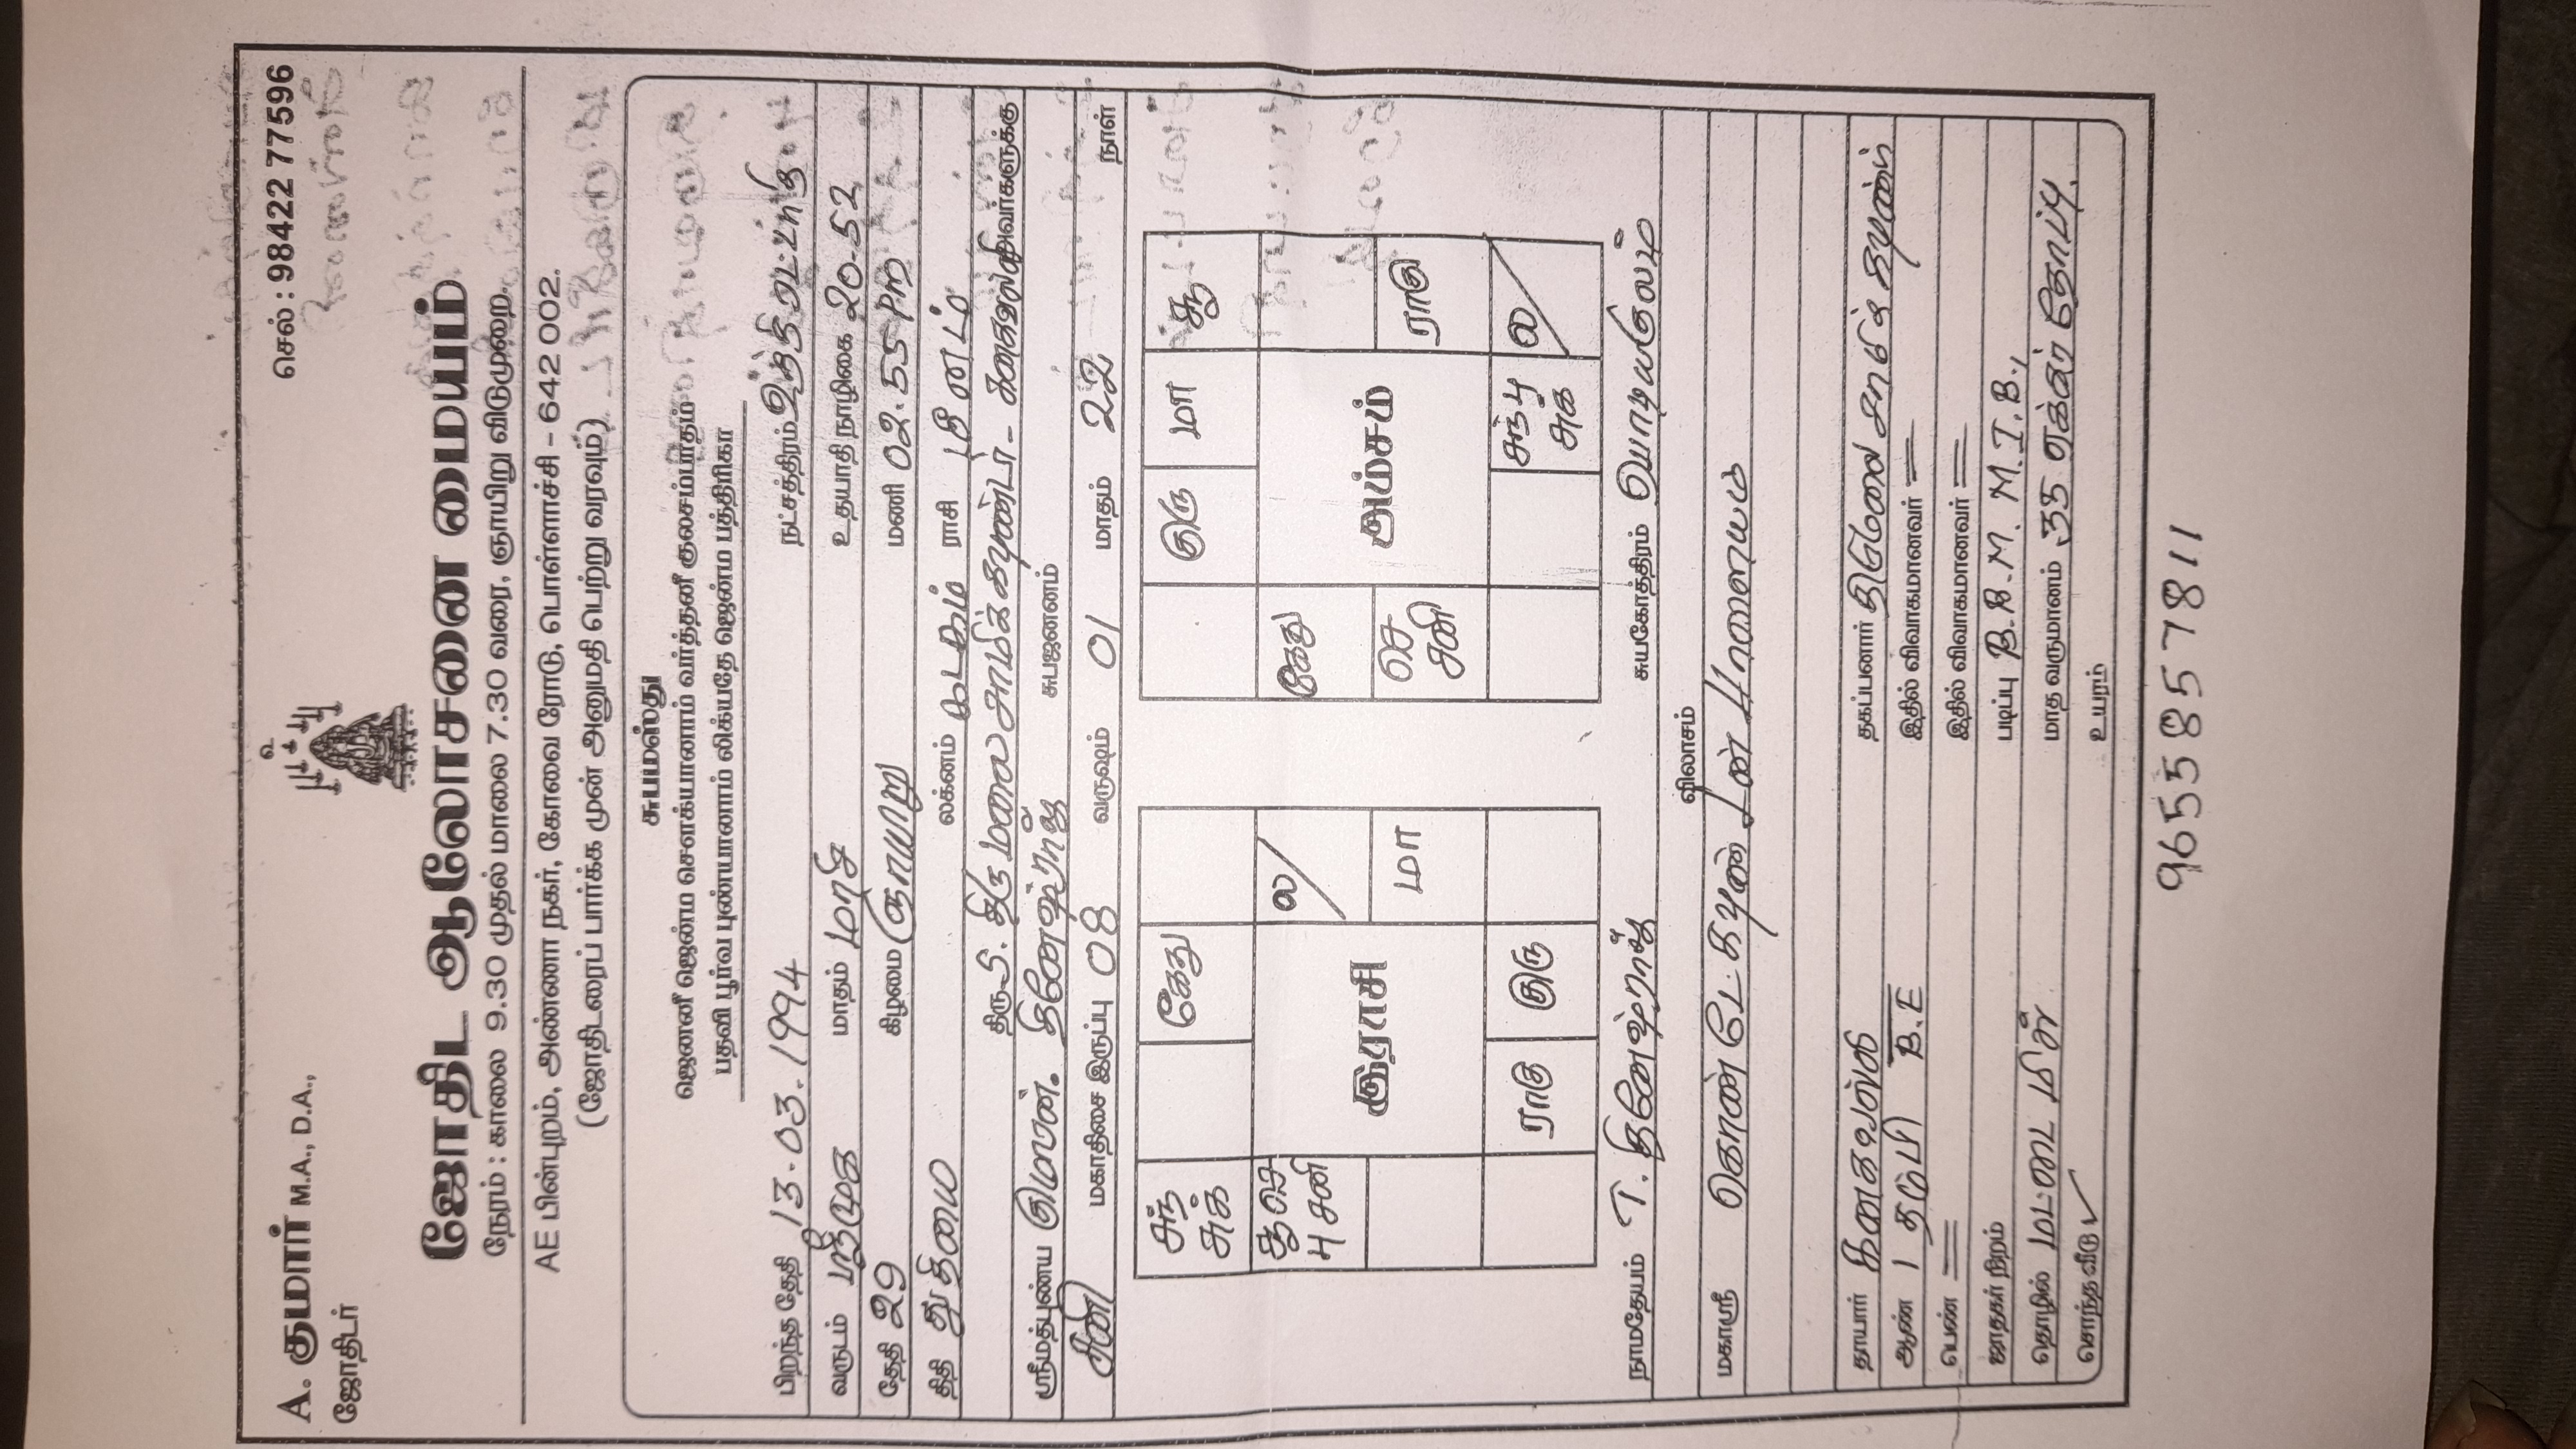 A. குமார் M.A., D.A.,
ஜோதிடர்
செல் : 98422 77596
ஜோதிட ஆலோசனை மையம்
நேரம் : காலை 9.30 முதல் மாலை 7.30 வரை, ஞாயிறு விடுமுறை.
AE பின்புறம், அண்ணா நகர், கோவை ரோடு, பொள்ளாச்சி - 642 002.
(ஜோதிடரைப் பார்க்க முன் அனுமதி பெற்று வரவும்)
சுபமஸ்து
ஜெனனீ ஜென்ம சௌக்யானாம் வர்த்தனீ குலசம்பாதம்
பதவி பூர்வ புண்யானாம் லிக்யதே ஜென்ம பத்திரிகா
பிறந்த தேதி 13-03-1994 நட்சத்திரம் உத்திரட்டாதி
வருடம் ஸ்ரீமுக மாதம் மாசி உதயாதி நாழிகை 20-52
தேதி 29 கிழமை ஞாயிறு மணி 02.55 Pm
திதி துதியை லக்னம் கடகம் ராசி மீனம்
திரு. S. திருமலைசாமிக்கவுண்டர் - கனகவல்லி அவர்களுக்கு
ஸ்ரீமத்புண்ய குமரன். தினேஷ்ராஜ் சுபஜனனம்
சனி மகாதிசை இருப்பு 08 வருஷம் 01 மாதம் 22 நாள்
சந் சுக் கேது
சூ செ பு சனி ல/
இராசி
மா
ராகு குரு
குரு மா சூ
கேது
அம்சம்
செ சனி ராகு
சந் பு சுக் ல/
நாமதேயம் T. தினேஷ்ராஜ் சுயகோத்திரம்
விலாசம்
மகாஸ்ரீ கொண்டேகவுண்டன் பாளையம்
தாயார் கனகவல்லி தகப்பனார் திருமலைசாமிக்கவுண்டர்
ஆண் 1 தம்பி B.E இதில் விவாகமானவர் =
பெண் = இதில் விவாகமானவர் =
ஜாதகர் நிறம் படிப்பு B.B.M. M.I.B.,
தொழில் மட்டை மில் மாத வருமானம் 35 ஏக்கர் தோப்பு.
சொந்த வீடு ✓ உயரம்
9655857811